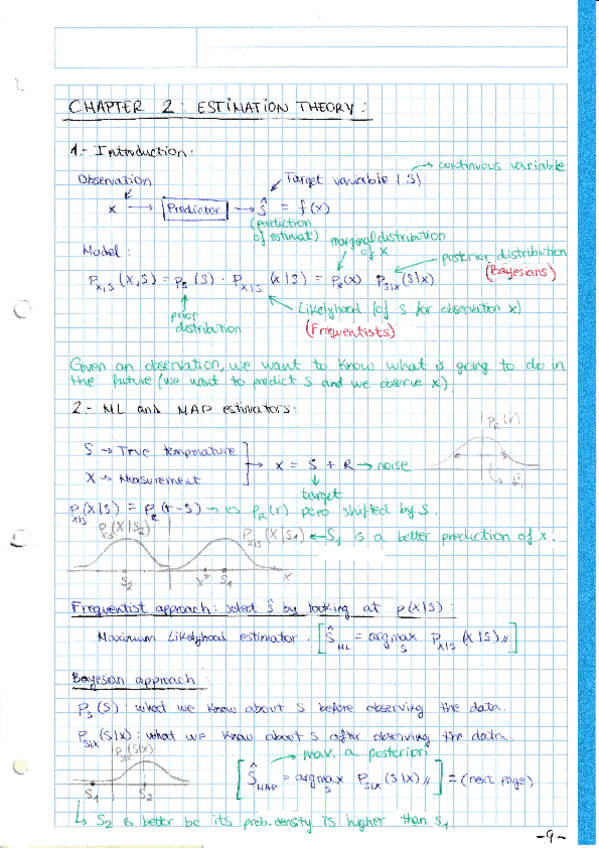 CHAPTER 2: ESTIMATION THEORY:
1.- Introduction:
Observation
Target variable (S) → continuous variable
x → Predictor → Ŝ = f(x)
(prediction
of estimat)
marginal distribution
of X
Model:
posterior distribution
(Bayesians)
P_{X,S}(X,S) = P_S(S) · P_{X|S}(X|S) = P_X(x) P_{S|X}(S|x)
prior
distribution
Likelyhood (of S for observation x)
(Frequentists)
Given an observation, we want to know what is going to do in
the future (we want to predict S and we observe x).
2.- ML and MAP estimators:
P_R(r)
S → True temperature
X → Measurement
→ X = S + R → noise
target
P_{X|S}(X|S) = P_R(r-S) → es P_R(r) pero shifted by S.
P_{X|S}(X|S₂)
P_{X|S}(X|S₁) ← S₁ is a better prediction of x.
S₂ x* S₁ x
Frequentist approach: select ŝ by looking at p(x|s):
Maximum Likelyhood estimator. [Ŝ_ML = argmax_S P_{X|S}(X|S)//]
Bayesian approach:
P_S(S): what we know about S before observing the data.
P_{S|X}(S|x): what we know about S after observing the data.
P_{S|X}(S|x)
→ max. a posteriori
[Ŝ_MAP = argmax_S P_{S|X}(S|x)//] = (next page)
S₁ S₂
↳ S₂ is better bc its prob. density is higher than S₁.
-9-